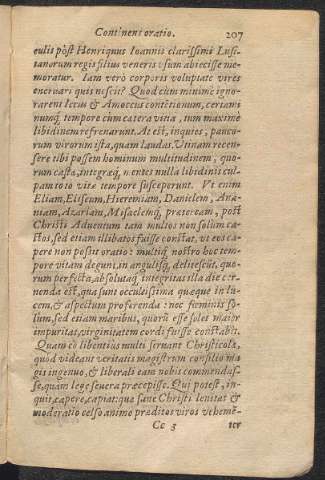 Continens oratio. 207
culis pòst Henriqnus Ioannis clarissimi Lusi-
tanorum regis filius veneris vsum abiecisse me-
moratur. Iam verò corporis voluptate vires
eneruari quis nescit? Quod cùm minimè igno-
rarent Iccus & Amoecus contētionum, certami
numq́; tempore cùm cætera vitia, tum maximè
libidinem refrenarunt. At est, inquies, pauco-
rum virorum ista, quam laudas. Vtinam recen-
sere tibi possem hominum multitudinem, quo-
rum casta, integræq́; mentes nulla libidinis cul-
pam toto vitæ tempore susceperunt. Vt enim
Eliam, Eliseum, Hieremiam, Danielem, Ana-
niam, Azariam, Misaelemq́; præteream, post
Christi Aduentum tam multos non solum ca-
stos, sed etiam illibatos fuisse constat, vt eos ca-
pere non possit oratio: multiq́; nostro hoc tem-
pore vitam degunt, in angulisq́; delitescūt, quo-
rum perfecta, absolutaq́; integritas illa die cer-
nenda est, qua sunt occultissima quæque in lu-
cem, & aspectum proferenda: nec feminis so-
lùm, sed etiam maribus, quorū esse solet maior
impuritas, virginitatem cordi fuisse constabit.
Quam eò libentiùs multi seruant Christicolæ,
quòd videant veritatis magistrum consilio ma-
gis ingenuo, & liberali eam nobis commendas-
se, quàm lege seuera præcepisse. Qui potest, in-
quit, capere, capiat: quæ sanè Christi lenitas &
moderatio celso animo præditos viros vehemē-
Cc 3 ter